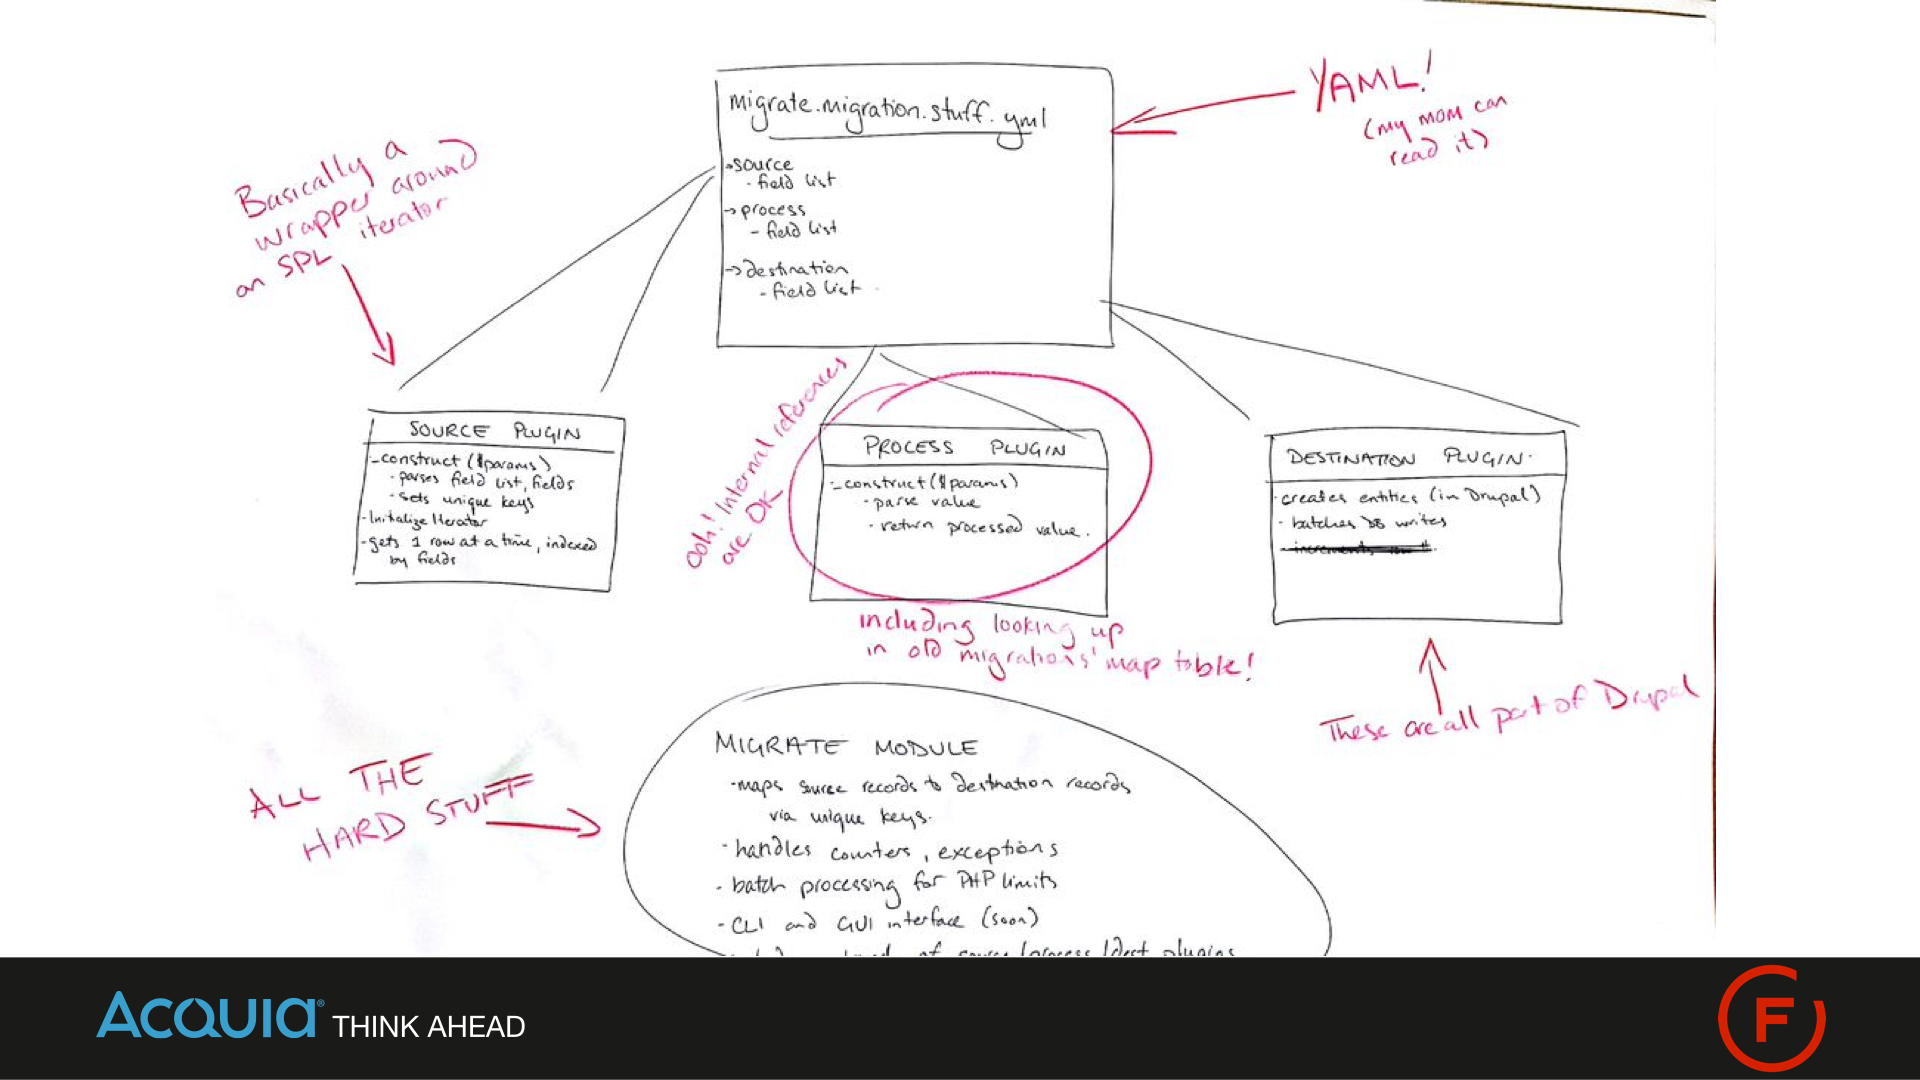 migrate.migration.stuff.yml
→source
- field list
→process
- field list
→destination
- field list
YAML!
(my mom can
read it)
Basically a
wrapper around
an SPL iterator
SOURCE PLUGIN
_construct ($params)
- parses field list, fields
- sets unique keys
- Initialize Iterator
- gets 1 row at a time, indexed
by fields
Ooh! Internal references
are OK
PROCESS PLUGIN
_construct ($params)
- parse value
- return processed value.
including looking up
in old migrations' map table!
DESTINATION PLUGIN
- creates entities (in Drupal)
- batches DB writes
These are all part of Drupal
ALL THE
HARD STUFF
MIGRATE MODULE
- maps source records to destination records
via unique keys.
- handles counters, exceptions
- batch processing for PHP limits
- CLI and GUI interface (soon)
of source/process/dest plugins
ACQUIA® THINK AHEAD
F